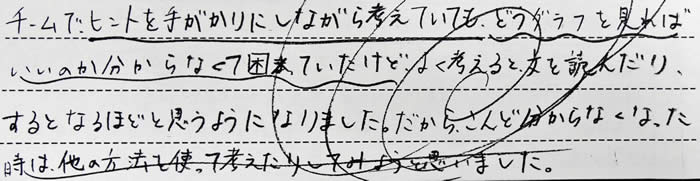 チームで、ヒントを手がかりにしながら考えていても、どうグラフを見れば
いいのか分からなくて困っていたけど、よく考えると、文を読んだり、
するとなるほどと思うようになりました。だから、こんど分からなくなった
時は、他の方法を使って考えたりしてみようと思いました。